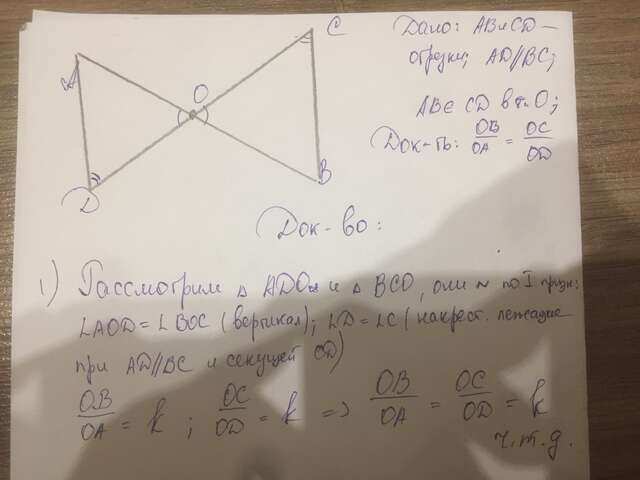 A
D
O
B
C
Дано: AB и CD –
отрезки, AD//BC;
AB ∈ CD в т. O;
Док-ть: OB/OA = OC/OD
Док-во:
1) Рассмотрим △ ADO и △ BCO, они ~ по I призн:
∠AOD = ∠BOC (вертикал); ∠D = ∠C (накрест. лежащие
при AD//BC и секущей CD)
OB/OA = k ; OC/OD = k => OB/OA = OC/OD = k
ч.т.д.